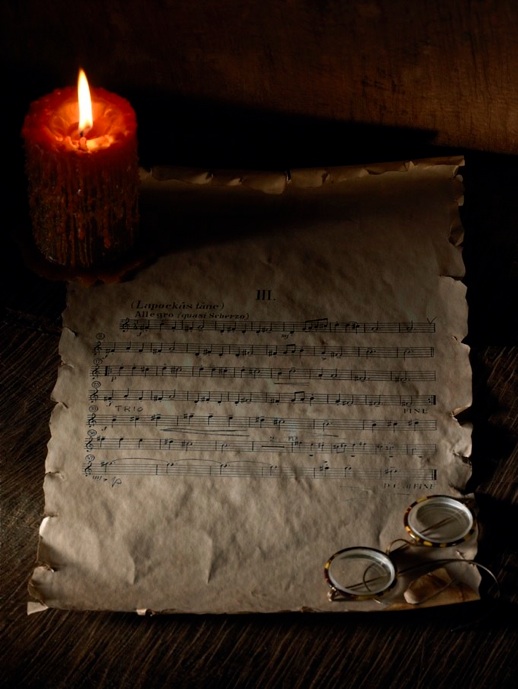 III.
Allegro (quasi Scherzo)
p
FINE
TRIO
D.C. al FINE